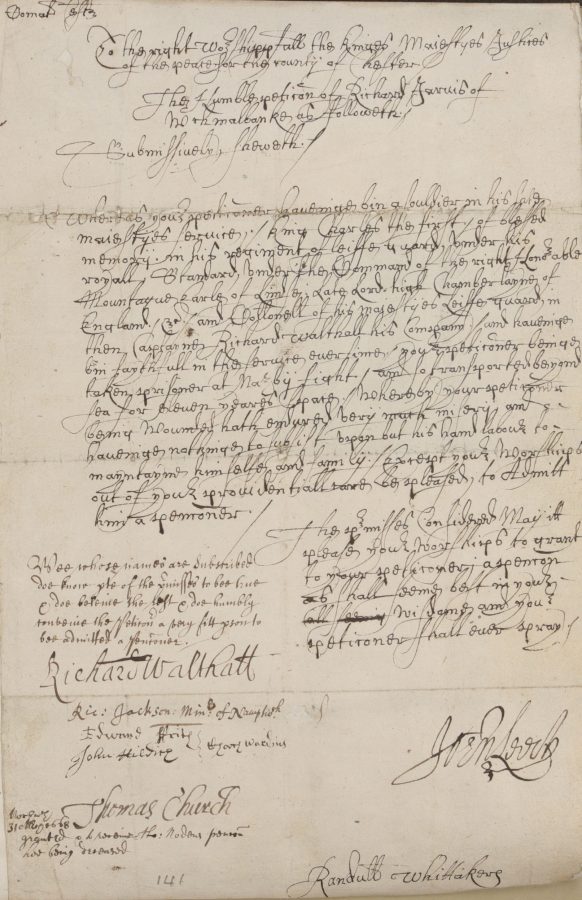 To the right Wor:shippfull the Kinges Majestyes Justices
of the peace for the County of Chester
The Humble peticon of Richard Jarvis of
Wichmalbanke as followeth
Submissively sheweth
Whereas your peticioner haveinge bin a souldier in his late
majestyes service, King Charles the first, of blessed
memory in his regiment of leiffe guard, under his
royall Standard, under the Command of the right Honorable
Mountague Earle of Linsey, late Lord high Chamberlayne of
England, &c, and Collonell of his majestyes leiffe guard, in
then Captayne Richard Walthall his Company, and haveinge
bin faythfull in the service ever since, your peticioner beinge
taken prisoner at Naseby fight, and so transported beyond
sea for eleven yeares space, Whereby your peticioner
being Wounded hath endured very much misery, and
haveinge nothinge to subsist upon but his hand labour to
mayntayne himselfe and family, Except your Worships
out of your providentiall care be pleased to Admitt
him a pencioner
The p:misses Considered May itt
please your Worships to grant
to your peticioner a pencon
as shall seeme best in your
Wisdomes and your
peticioner shall ever pray
Wee whose names are subscribed
doe know pte of the p:misses to bee true
& doe beleive the rest & doe humbly
conceive the petition a very fitt pson to
bee admitted a Pencioner
Richard Walthall
Ric: Jackson: Min: of Namptwich
Edward
John Hilditch Churchwardens
John Leech
Thomas Church
granted to receive Tho: Nodens pencon
hee being deceased
141
Randull Whittakers